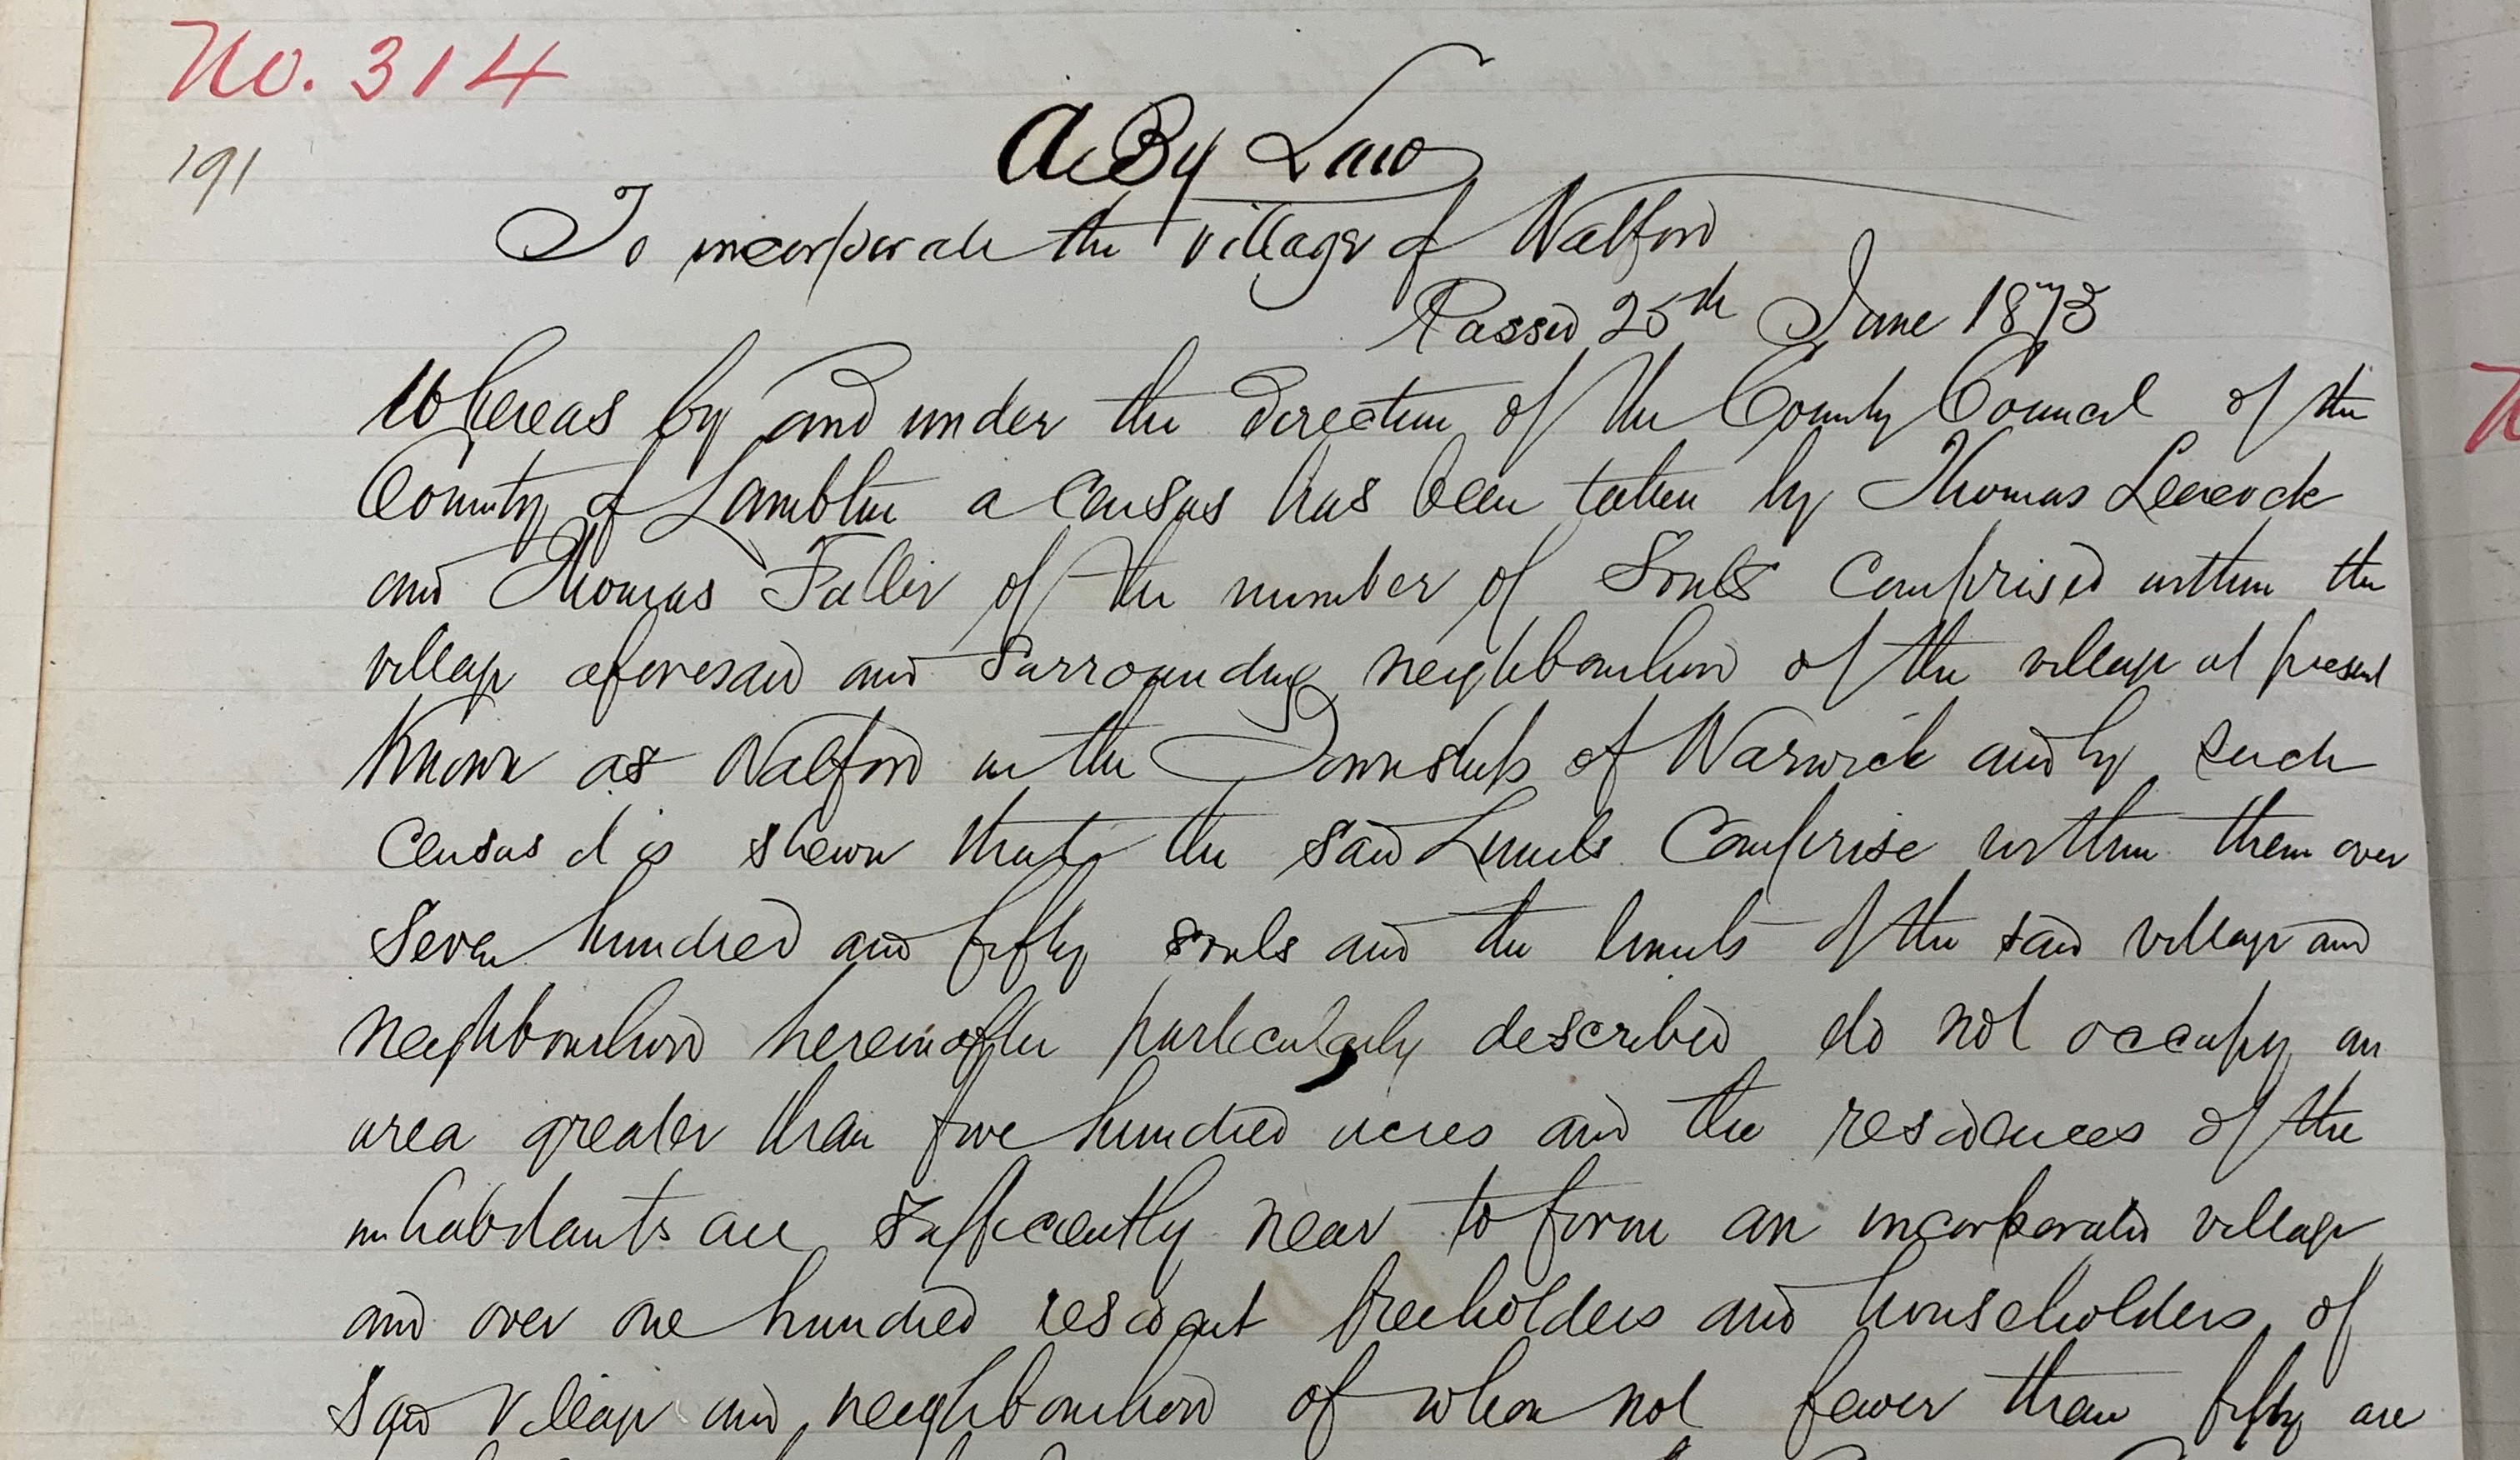 No. 314
191
A By Law
To incorporate the village of Watford
Passed 25th June 1873
Whereas by and under the direction of the County Council of the
County of Lambton a Census has been taken by Thomas Leacock
and Thomas Fuller of the number of Souls comprised within the
village aforesaid and surrounding neighbourhood of the village at present
Known as Watford in the Township of Warwick and by such
Census it is shewn that the said Limits Comprise within them over
Seven hundred and fifty souls and the limits of the said village and
neighbourhood hereinafter particularly described do not occupy an
area greater than five hundred acres and the residences of the
inhabitants are sufficiently near to form an incorporated village
and over one hundred resident freeholders and householders of
said village and neighbourhood of whom not fewer than fifty are